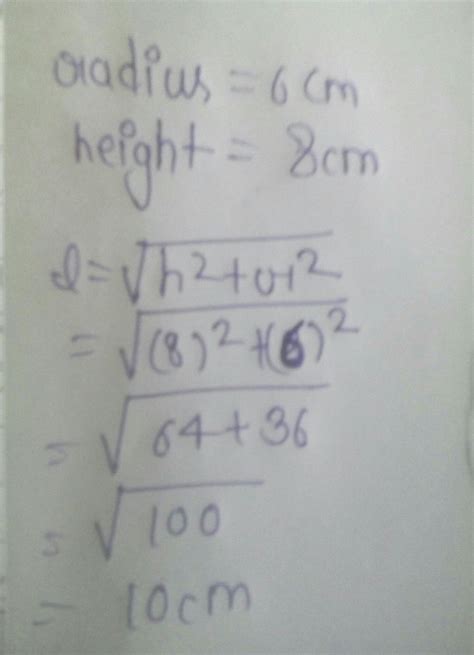 radius = 6 cm
height = 8cm
l = √h² + r²
= √(8)² + (6)²
= √64 + 36
= √100
= 10cm